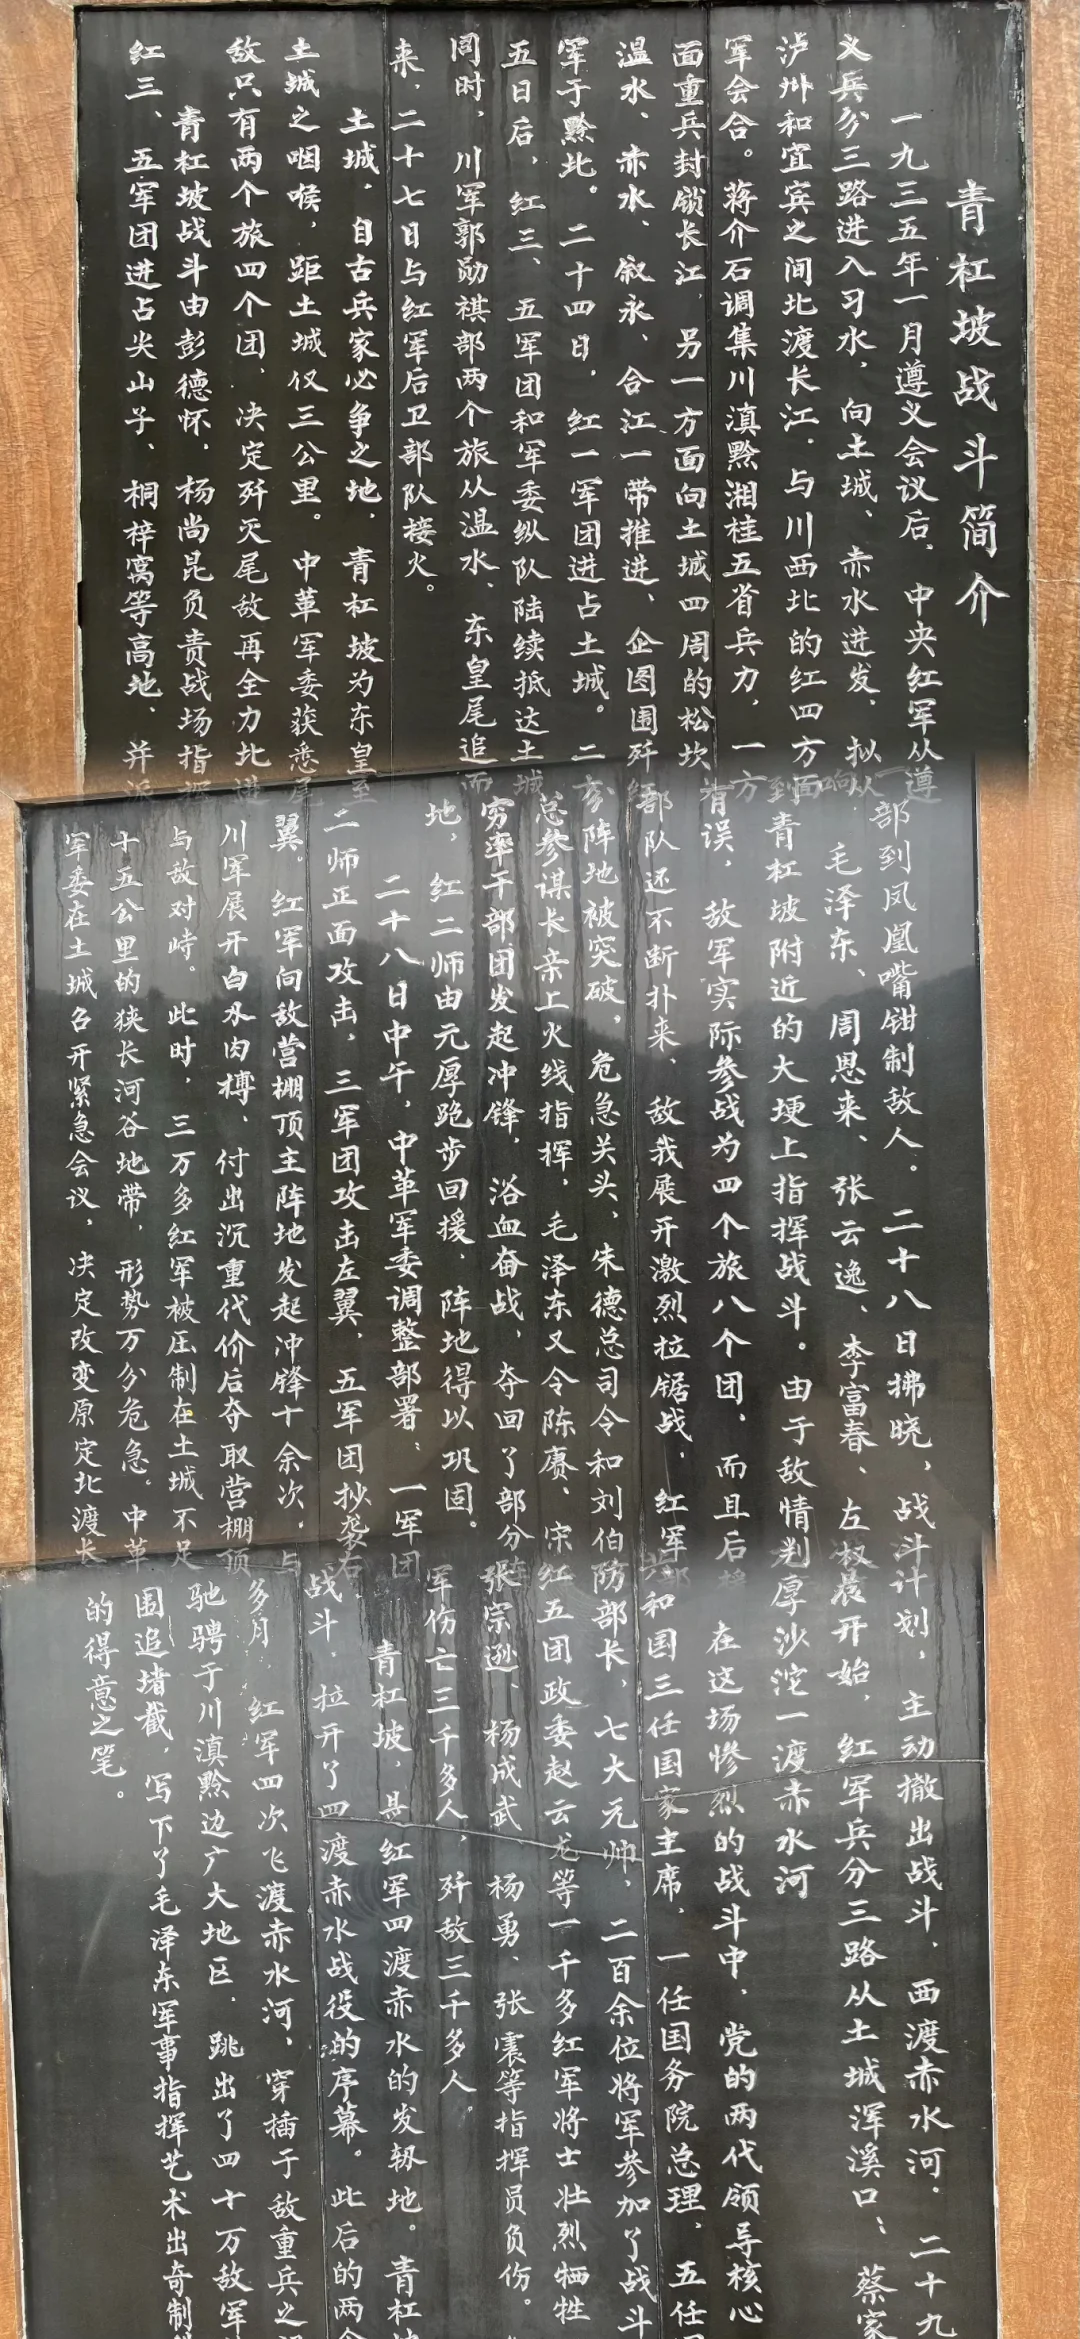 青杠坡战斗简介
一九三五年一月遵义会议后，中央红军从遵
义兵分三路进入习水，向土城、赤水进发，拟从
泸州和宜宾之间北渡长江，与川西北的红四方面
军会合。蒋介石调集川滇黔湘桂五省兵力，一方
面重兵封锁长江，另一方面向土城四周的松坎
温水、赤水、叙永、合江一带推进，企图围歼红
军于黔北。二十四日，红一军团进占土城。二
五日后，红三、五军团和军委纵队陆续抵达土城
同时，川军郭勋祺部两个旅从温水、东皇尾追而
来，二十七日与红军后卫部队接火。
土城，自古兵家必争之地，青杠坡为东皇至
土城之咽喉，距土城仅三公里。中革军委获悉尾
敌只有两个旅四个团，决定歼灭尾敌再全力北进
青杠坡战斗由彭德怀、杨尚昆负责战场指挥
红三、五军团进占尖山子、桐梓窝等高地，并派
一部到凤凰嘴钳制敌人。二十八日拂晓，战斗
毛泽东、周恩来、张云逸、李富春、左权
到青杠坡附近的大埂上指挥战斗。由于敌情判
有误，敌军实际参战为四个旅八个团，而且后援
部队还不断扑来，敌我展开激烈拉锯战，红军部
阵地被突破，危急关头，朱德总司令和刘伯
总参谋长亲上火线指挥，毛泽东又令陈赓、宋
穷率干部团发起冲锋，浴血奋战，夺回了部分阵
地，红二师由元厚跑步回援，阵地得以巩固。
二十八日中午，中革军委调整部署：一军团
二师正面攻击，三军团攻击左翼，五军团抄袭右
翼。红军向敌营棚顶主阵地发起冲锋十余次，与
川军展开白水肉搏，付出沉重代价后夺取营棚顶
与敌对峙。此时，三万多红军被压制在土城不足
十五公里的狭长河谷地带，形势万分危急。中革
军委在土城召开紧急会议，决定改变原定北渡长
计划，主动撤出战斗，西渡赤水河。二十九
晨开始，红军兵分三路从土城浑溪口；蔡家
厚沙沱一渡赤水河
在这场惨烈的战斗中，党的两代领导核心
共和国三任国家主席，一任国务院总理，五任
防部长，七大元帅，二百余位将军参加了战斗
红五团政委赵云龙等一千多红军将士壮烈牺牲
张宗逊、杨成武、杨勇、张震等指挥员负伤。
军伤亡三千多人，歼敌三千多人。
青杠坡，是红军四渡赤水的发轫地。青杠
战斗，拉开了四渡赤水战役的序幕。此后的两个
多月，红军四次飞渡赤水河，穿插于敌重兵之
驰骋于川滇黔边广大地区，跳出了四十万敌军
围追堵截，写下了毛泽东军事指挥艺术出奇制
的得意之笔。